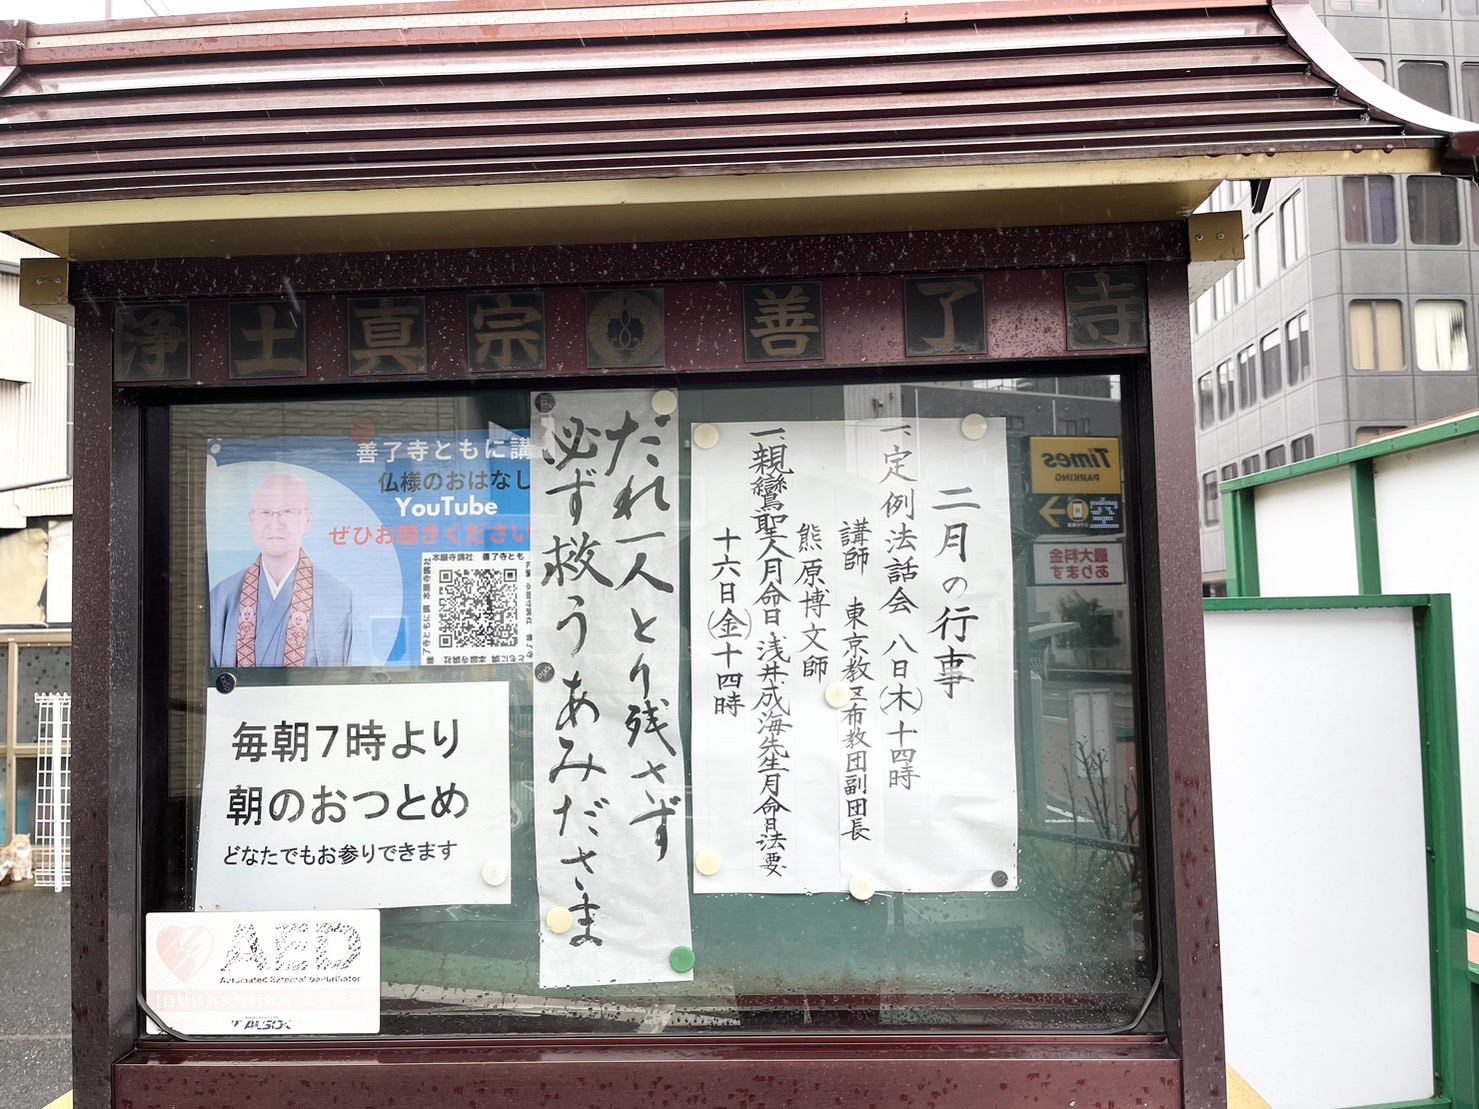 浄土真宗 善了寺
善了寺ともに講
仏様のおはなし
YouTube
ぜひお聴きください
本願寺講社 善了寺とも
毎朝7時より
朝のおつとめ
どなたでもお参りできます
AED
Automated External Defibrillator
ALSOK
だれ一人とり残さず
必ず救うあみださま
二月の行事
一、定例法話会 八日(木)十四時
講師 東京教区布教団副団長
熊原博文師
一、親鸞聖人月命日 浅井成海先生月命日法要
十六日(金)十四時
Times
PARKING
空
最大料金
あります